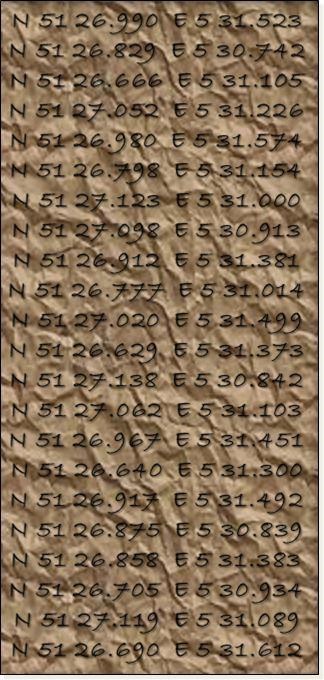 N 51 26.990 E 5 31.523
N 51 26.829 E 5 30.742
N 51 26.666 E 5 31.105
N 51 27.052 E 5 31.226
N 51 26.980 E 5 31.574
N 51 26.798 E 5 31.154
N 51 27.123 E 5 31.000
N 51 27.098 E 5 30.913
N 51 26.912 E 5 31.381
N 51 26.777 E 5 31.014
N 51 27.020 E 5 31.499
N 51 26.629 E 5 31.373
N 51 27.138 E 5 30.842
N 51 27.062 E 5 31.103
N 51 26.967 E 5 31.451
N 51 26.640 E 5 31.300
N 51 26.917 E 5 31.492
N 51 26.875 E 5 30.839
N 51 26.858 E 5 31.383
N 51 26.705 E 5 30.934
N 51 27.119 E 5 31.089
N 51 26.690 E 5 31.612